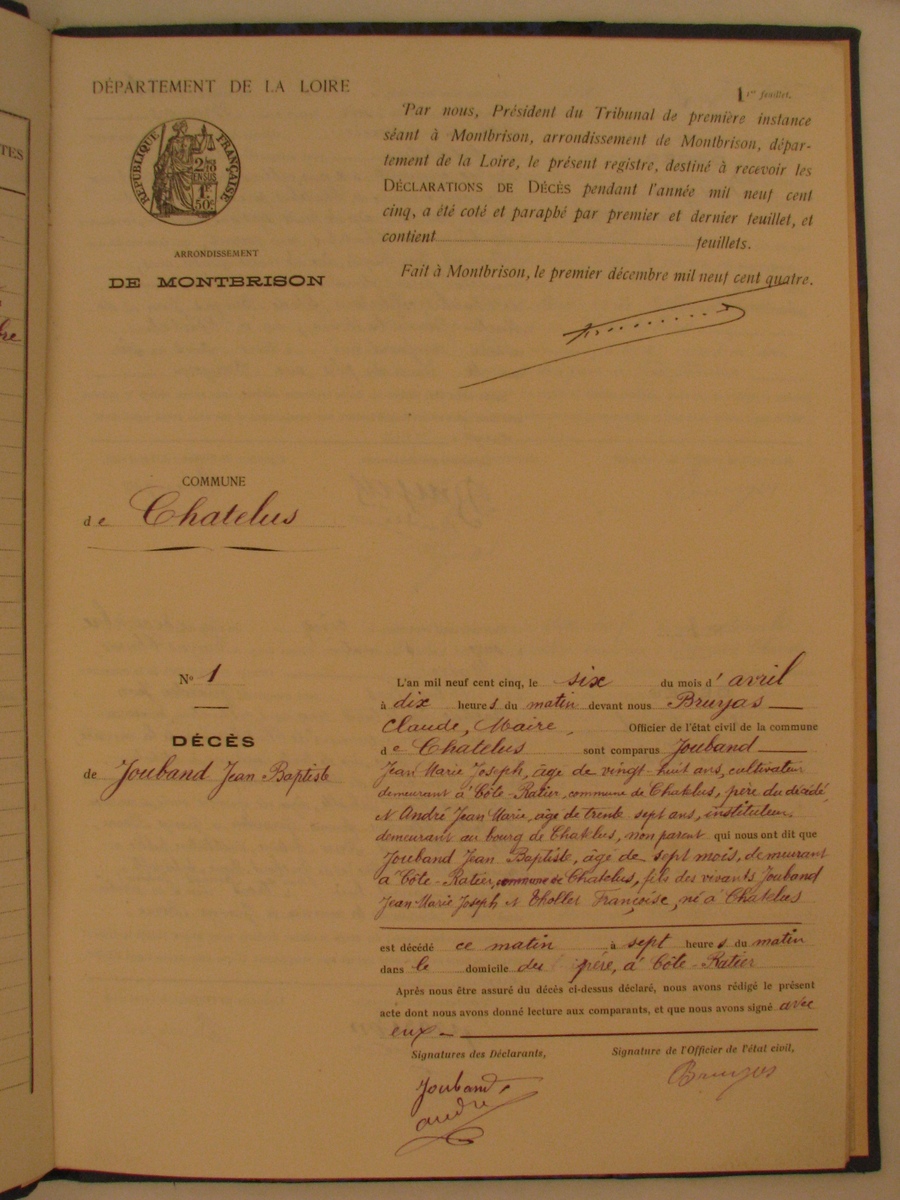 DÉPARTEMENT DE LA LOIRE
1 1er feuillet.
RÉPUBLIQUE FRANÇAISE
1F
50c
ARRONDISSEMENT
DE MONTBRISON
Par nous, Président du Tribunal de première instance
séant à Montbrison, arrondissement de Montbrison, dépar-
tement de la Loire, le présent registre, destiné à recevoir les
DÉCLARATIONS DE DÉCÈS pendant l'année mil neuf cent
cinq, a été coté et paraphé par premier et dernier feuillet, et
contient feuillets.
Fait à Montbrison, le premier décembre mil neuf cent quatre.
COMMUNE
de Chatelus
No 1
DÉCÈS
de Jouband Jean Baptiste
L'an mil neuf cent cinq, le six du mois d'avril
à dix heures du matin devant nous Bruyas
Claude, Maire, Officier de l'état civil de la commune
de Chatelus sont comparus Jouband
Jean Marie Joseph, âge de vingt-huit ans, cultivateur
demeurant à Côte-Ratier, commune de Chatelus, père du décédé,
et André Jean Marie, âge de trente sept ans, instituteur,
demeurant au bourg de Chatelus, non parent qui nous ont dit que
Jouband Jean Baptiste, âgé de sept mois, demeurant
à Côte-Ratier, commune de Chatelus, fils des vivants Jouband
Jean-Marie Joseph et Thollet Françoise, né à Chatelus
est décédé ce matin à sept heures du matin
dans le domicile du père, à Côte-Ratier
Après nous être assuré du décès ci-dessus déclaré, nous avons rédigé le présent
acte dont nous avons donné lecture aux comparants, et que nous avons signé avec
eux
Signatures des Déclarants,
Signature de l'Officier de l'état civil,
Jouband
André
Bruyas